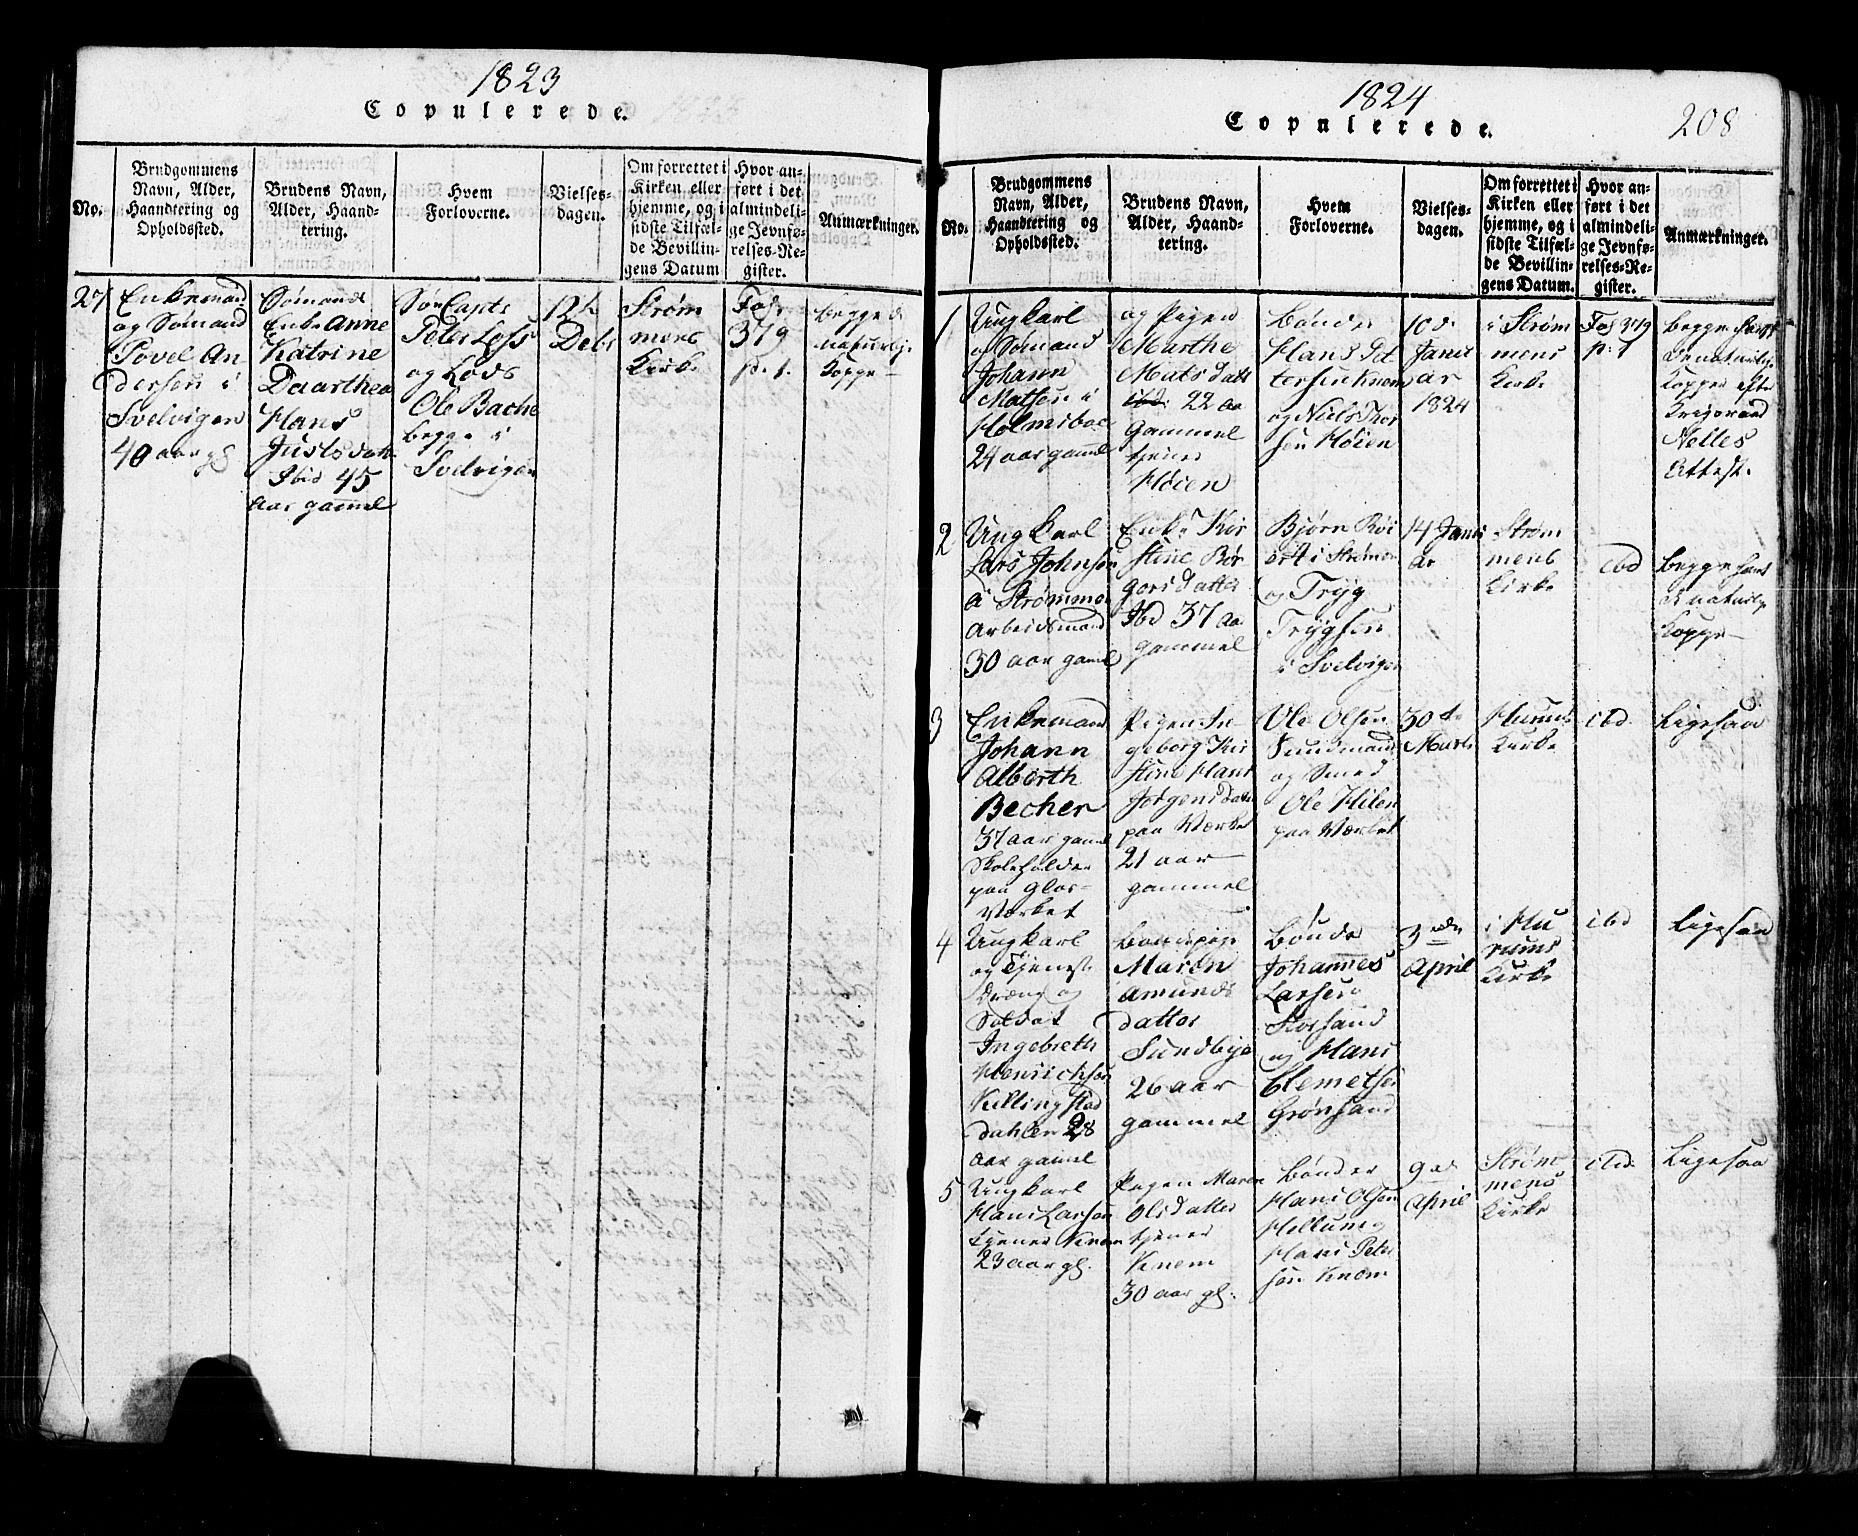 1823
Copulerede.
No.
Brudgommens
Navn, Alder,
Haandtering og
Opholdssted.
Brudens Navn,
Alder, Haand-
tering.
Hvem
Forloverne.
Vielses-
dagen.
Om forrettet i
Kirken eller
hjemme, og i
sidste Tilfæl-
de Bevillin-
gens Datum
Hvor an-
ført i det
almindeli-
ge Jevnfø-
relses-Re-
gister.
Anmærkninger.
27
Enkemand
og Sømand
Povel An
dersen i
Svelvigen
40 aar gl
Sømands
Enke Anne
Katrine
Daarthea
Hans
Justsdatt
Ibid 45
aar gammel
Peter Loss
og Lods
Ole Bache
begge i
Svelvigen
12te
Debr
Strøm
mens
Kirke
Fol
379
p. 1.
begge d
naturlige
Kopper
1824
Copulerede.
208
No.
Brudgommens
Navn, Alder,
Haandtering og
Opholdssted.
Brudens Navn,
Alder, Haand-
tering.
Hvem
Forloverne.
Vielses-
dagen.
Om forrettet i
Kirken eller
hjemme, og i
sidste Tilfæl-
de Bevillin-
gens Datum.
Hvor an-
ført i det
almindeli-
ge Jevnfø-
relses-Re-
gister.
Anmærkninger.
1
Ungkarl
og Sømand
Johann
Matsen i
Holmsboe
24 aar gammel
og Pigen
Marthe
Matsdatt
ibd: 22 aa
gammel
tjener
Høien
Bønder
Hans Pet
tersen Knem
og Niels Thor
sen Høien
10de
Janu
ar
1824
i Strøm
mens
Kirke
Fol 379
p: 1
begge
De naturlige
Kopper efter
Krigsraad
Nelles
Attest.
2
Ungkarl
Lars Johnsen
a Strømmen
Arbeidsmand
30 aar gamel
Enke Kir
stine Bør
gersdatter
Ibd 37 aar
gammel
Bjørn Røi
ert i Strømen
og Tryg
Trygsen
i Svelvigen
14 Janu
ar
Strøm
mens
Kirke
ibd
begge havt
de naturlige
Kopper
3
Enkemand
Johann
Alberth
Becher
37 aar gamel
Skoleholder
paa Glas-
Værket
Pigen In
geborg Kir
stine Hans
Jørgensdatt
paa Værket
21 aar
gammel
Ole Olsen
Sundmand
og Smed
Ole Hilen
paa Værket
30te
Marts
Hurums
Kirke
ibd.
Ligesaa
4
Ungkarl
og Tjeneste
Dreng og
Soldat
Ingebreth
Henrichsen
Killingstad
dahlen 28
aar gamel
Bondepige
Maren
Amunds
datter
Sundbye
26 aar
gammel
Bønder
Johannes
Larsen
Storsand
og Hans
Clemetsen
Grønsand
3die
April
i Hu
rums
Kirke
ibd
Ligesaa
5
Ungkarl
Hans Larsen
tjener Knem
23 aar gl.
Pigen Maren
Olsdatter
tjener
Knem
30 aar gl.
Bønder
Hans Olsen
Hellum og
Hans Peter
sen Knem
9de
April
Strøm
mens
Kirke
ibd.
Ligesaa